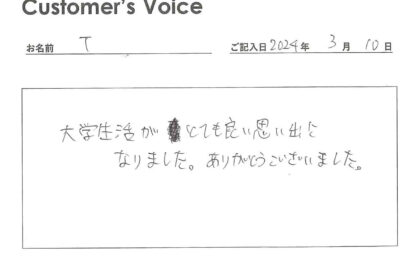 Customer's Voice
お名前 T ご記入日 2024年 3月 10日
大学生活が とても良い思い出と
なりました。ありがとうございました。